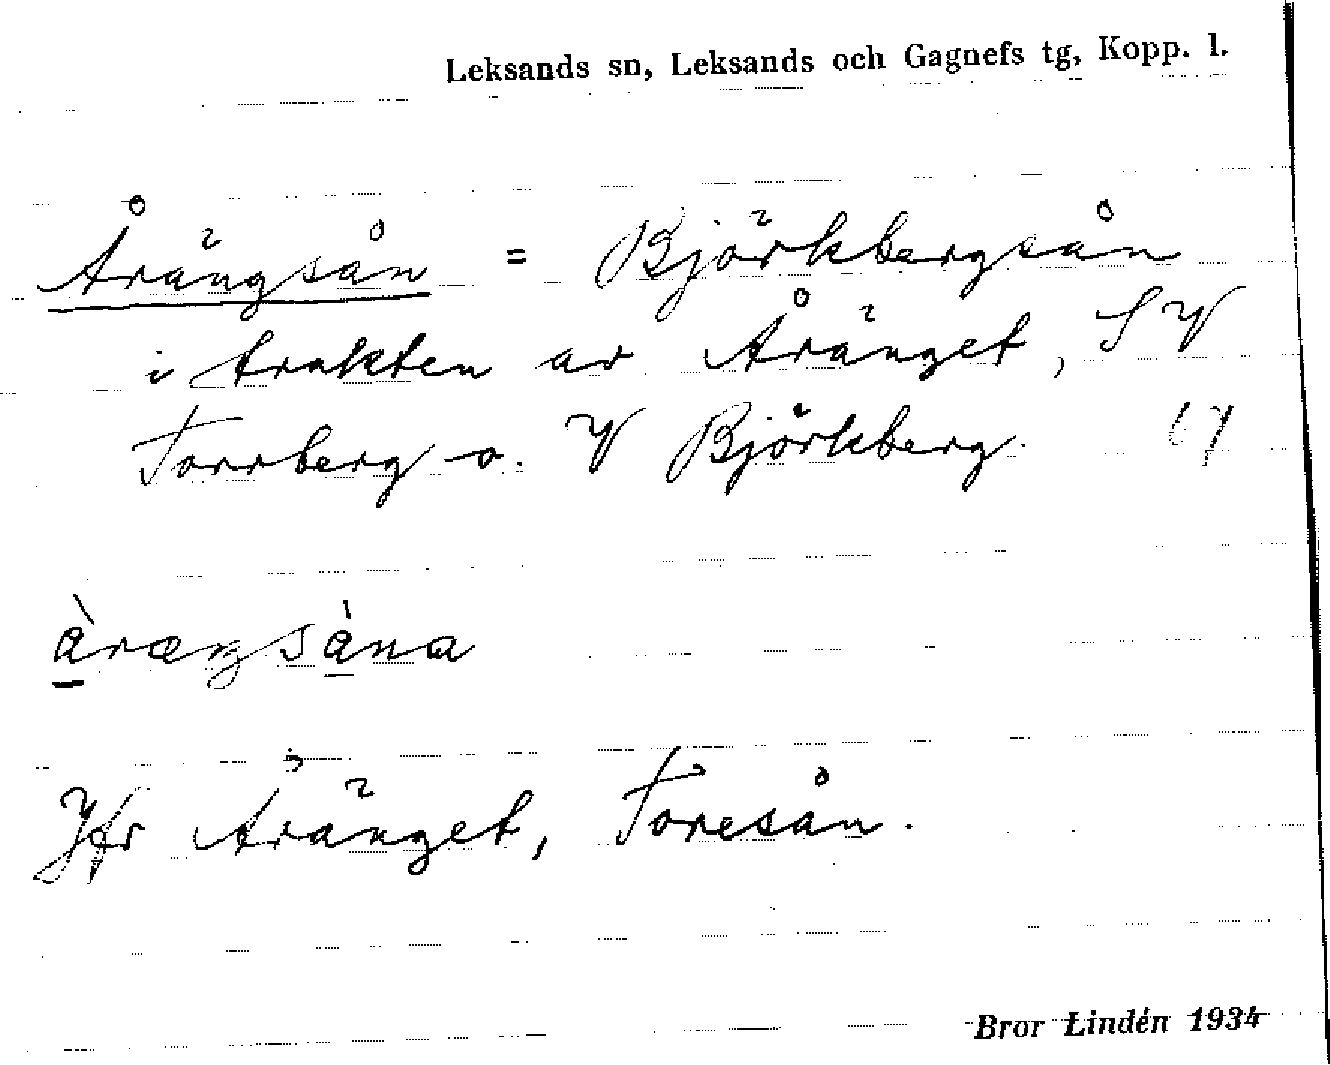 Leksands sn, Leksands och Gagnefs tg, Kopp. l.
Årängsån = Björkbergsån
i trakten av Åränget, SV
Torrberg o. V Björkberg.
Jfr Åränget, Foresån.
Bror Lindén 1934